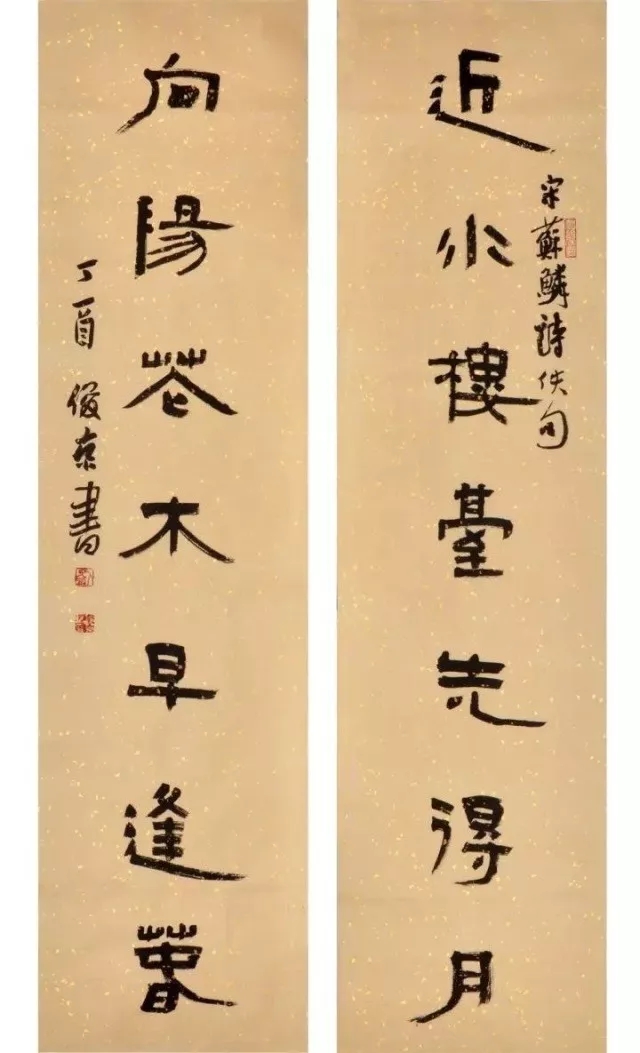 近水樓臺先得月
宋蘇鱗詩佚句
向陽花木早逢春
丁酉 俊京書